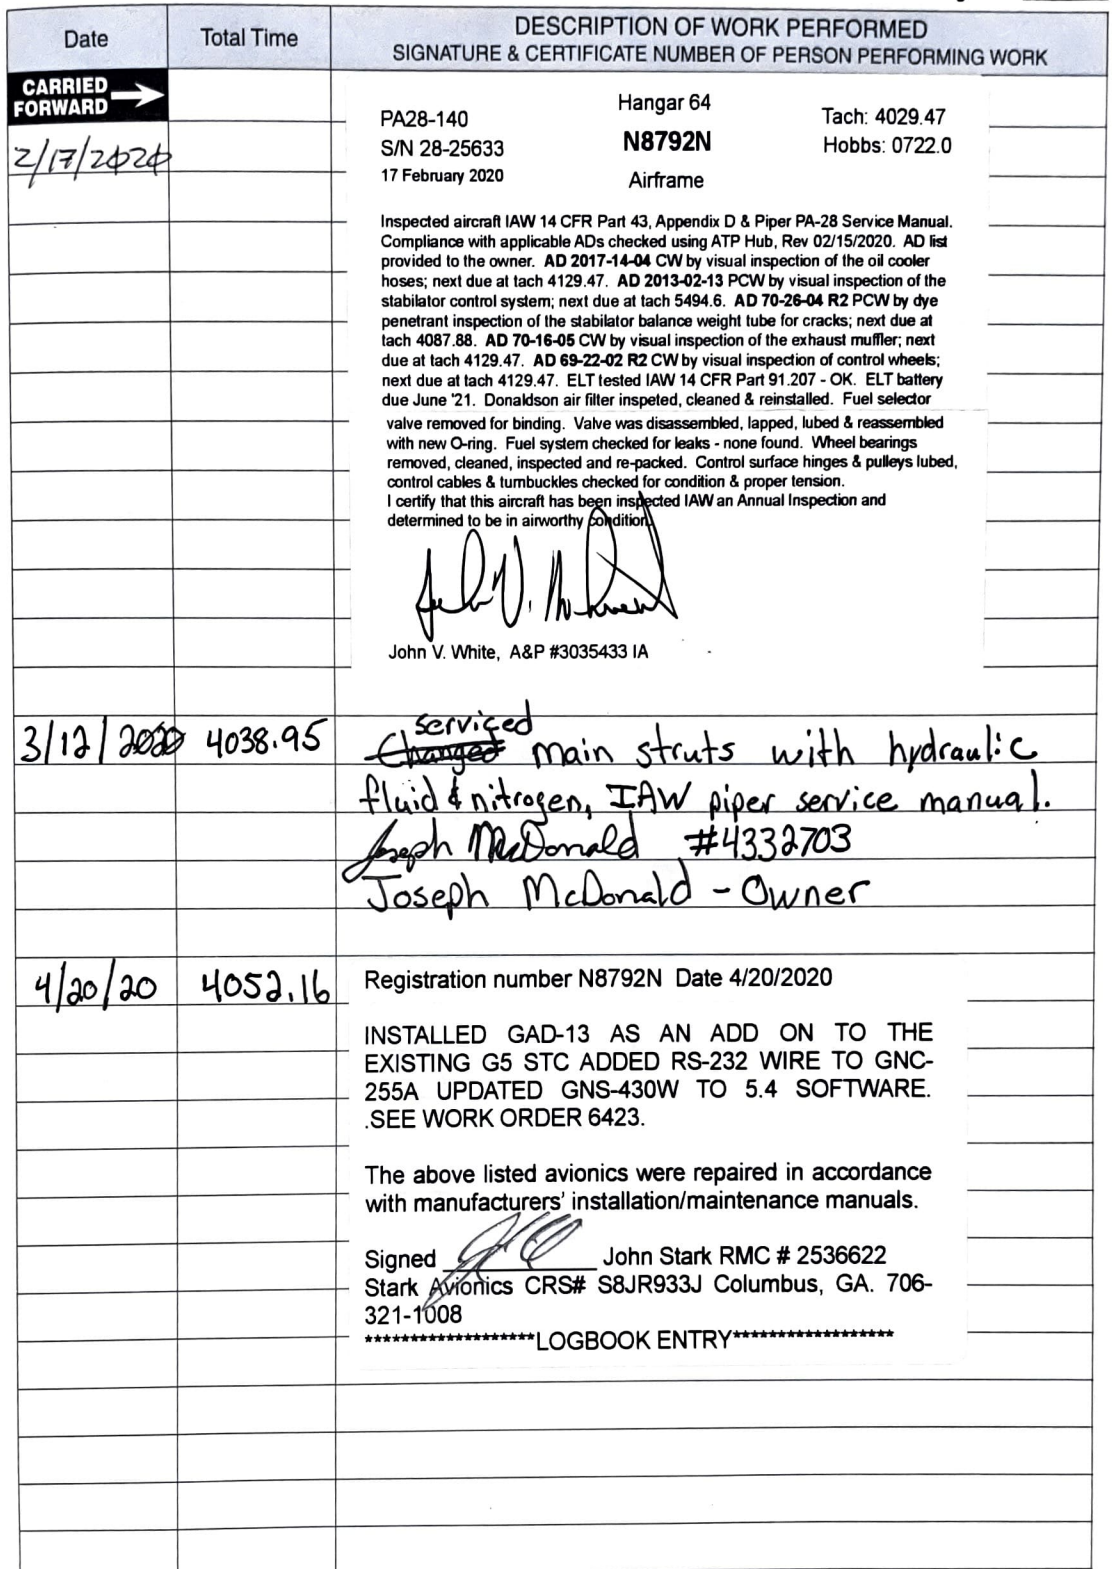 Date Total Time DESCRIPTION OF WORK PERFORMED
SIGNATURE & CERTIFICATE NUMBER OF PERSON PERFORMING WORK
CARRIED
FORWARD
2/17/2020
PA28-140 Hangar 64 Tach: 4029.47
S/N 28-25633 N8792N Hobbs: 0722.0
17 February 2020 Airframe
Inspected aircraft IAW 14 CFR Part 43, Appendix D & Piper PA-28 Service Manual.
Compliance with applicable ADs checked using ATP Hub, Rev 02/15/2020. AD list
provided to the owner. AD 2017-14-04 CW by visual inspection of the oil cooler
hoses; next due at tach 4129.47. AD 2013-02-13 PCW by visual inspection of the
stabilator control system; next due at tach 5494.6. AD 70-26-04 R2 PCW by dye
penetrant inspection of the stabilator balance weight tube for cracks; next due at
tach 4087.88. AD 70-16-05 CW by visual inspection of the exhaust muffler; next
due at tach 4129.47. AD 69-22-02 R2 CW by visual inspection of control wheels;
next due at tach 4129.47. ELT tested IAW 14 CFR Part 91.207 - OK. ELT battery
due June '21. Donaldson air filter inspeted, cleaned & reinstalled. Fuel selector
valve removed for binding. Valve was disassembled, lapped, lubed & reassembled
with new O-ring. Fuel system checked for leaks - none found. Wheel bearings
removed, cleaned, inspected and re-packed. Control surface hinges & pulleys lubed,
control cables & turnbuckles checked for condition & proper tension.
I certify that this aircraft has been inspected IAW an Annual Inspection and
determined to be in airworthy condition.
John V. White, A&P #3035433 IA
serviced
3/12/2020 4038.95 Changed main struts with hydraulic
fluid & nitrogen, IAW piper service manual.
Joseph McDonald #4332703
Joseph McDonald - Owner
4/20/20 4052.16 Registration number N8792N Date 4/20/2020
INSTALLED GAD-13 AS AN ADD ON TO THE
EXISTING G5 STC ADDED RS-232 WIRE TO GNC-
255A UPDATED GNS-430W TO 5.4 SOFTWARE.
.SEE WORK ORDER 6423.
The above listed avionics were repaired in accordance
with manufacturers' installation/maintenance manuals.
Signed John Stark RMC # 2536622
Stark Avionics CRS# S8JR933J Columbus, GA. 706-
321-1008
*******************LOGBOOK ENTRY******************